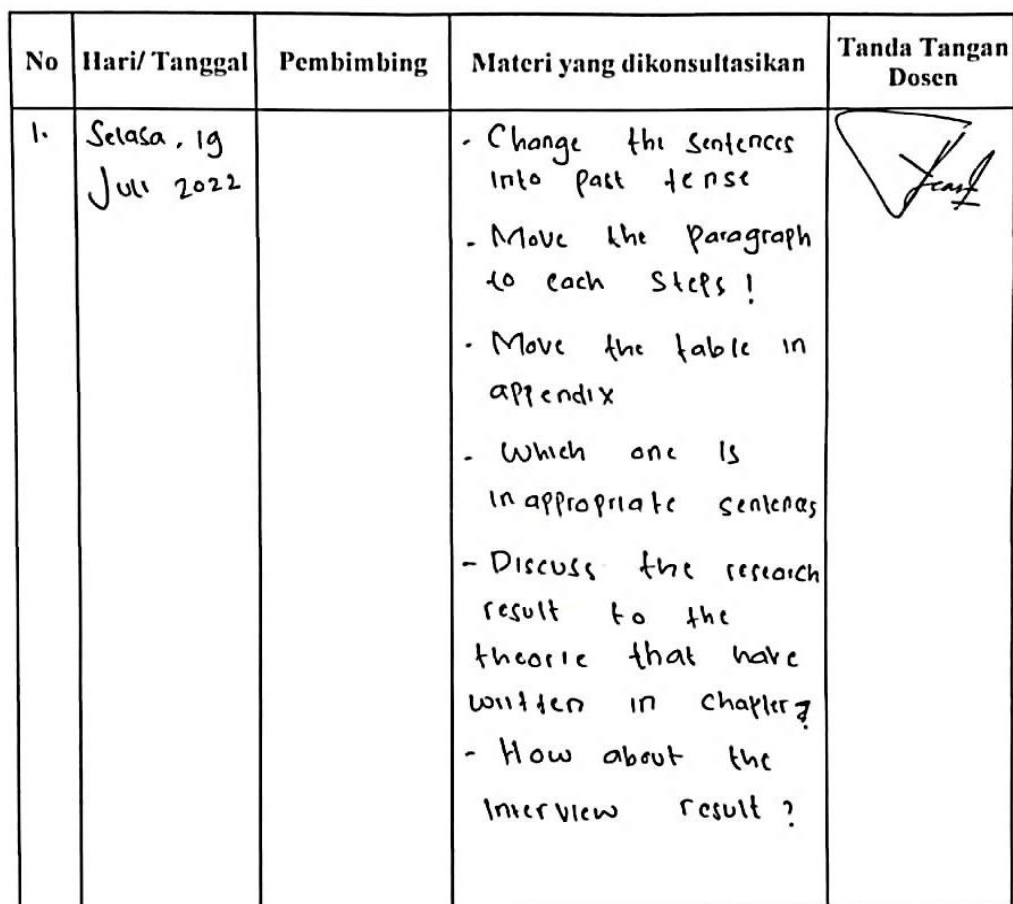 No Hari/ Tanggal Pembimbing Materi yang dikonsultasikan Tanda Tangan Dosen
1. Selasa, 19
Juli 2022
- Change the sentences
into past tense
- Move the paragraph
to each steps !
- Move the table in
appendix
- Which one is
inappropriate sentences
- Discuss the research
result to the
theorie that have
written in chapter
- How about the
interview result ?